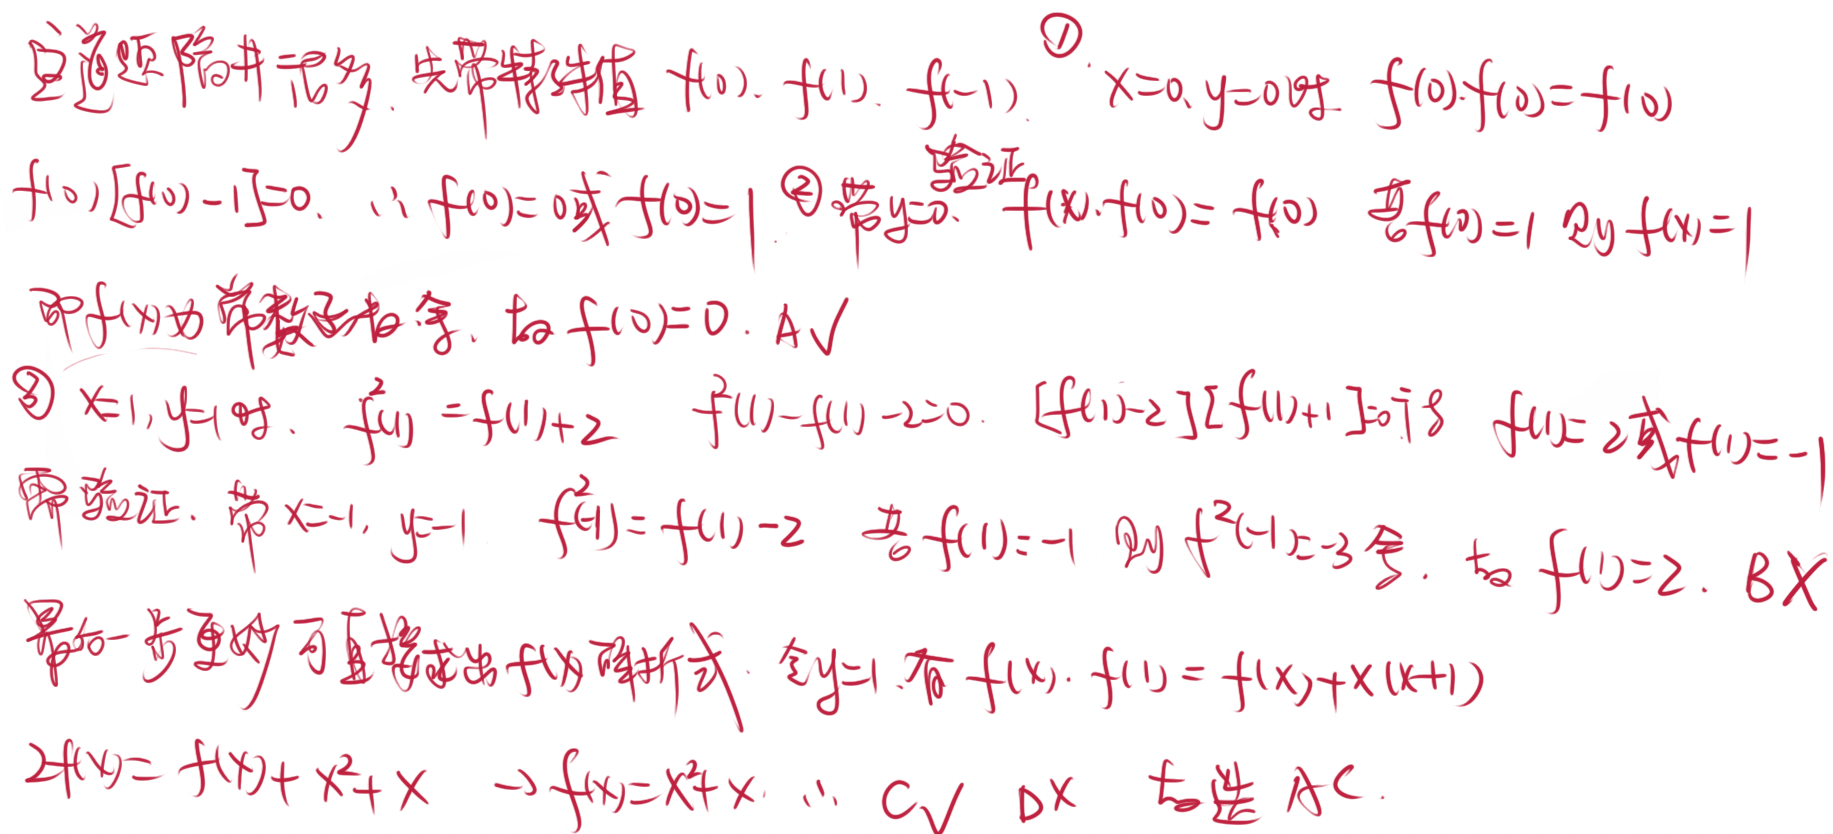 这道题陷井很多. 先带特殊值 f(0). f(1). f(-1). ① x=0, y=0时 f(0)·f(0)=f(0)
f(0)[f(0)-1]=0. ∴ f(0)=0或f(0)=1. ②带y=0. 验证 f(x)·f(0)=f(0) 若f(0)=1 则f(x)=1
即f(x)为常数函数舍. 故f(0)=0. A√
③ x=1, y=1时. f²(1)=f(1)+2 f²(1)-f(1)-2=0. [f(1)-2][f(1)+1]=0得 f(1)=2或f(1)=-1
需验证. 带x=-1, y=-1 f²(-1)=f(1)-2 若f(1)=-1 则f²(-1)=-3舍. 故f(1)=2. B×
最后一步更妙可直接求出f(x)解析式. 令y=1.有f(x)·f(1)=f(x)+x(x+1)
2f(x)=f(x)+x²+x → f(x)=x²+x. ∴ C√ D× 故选AC.